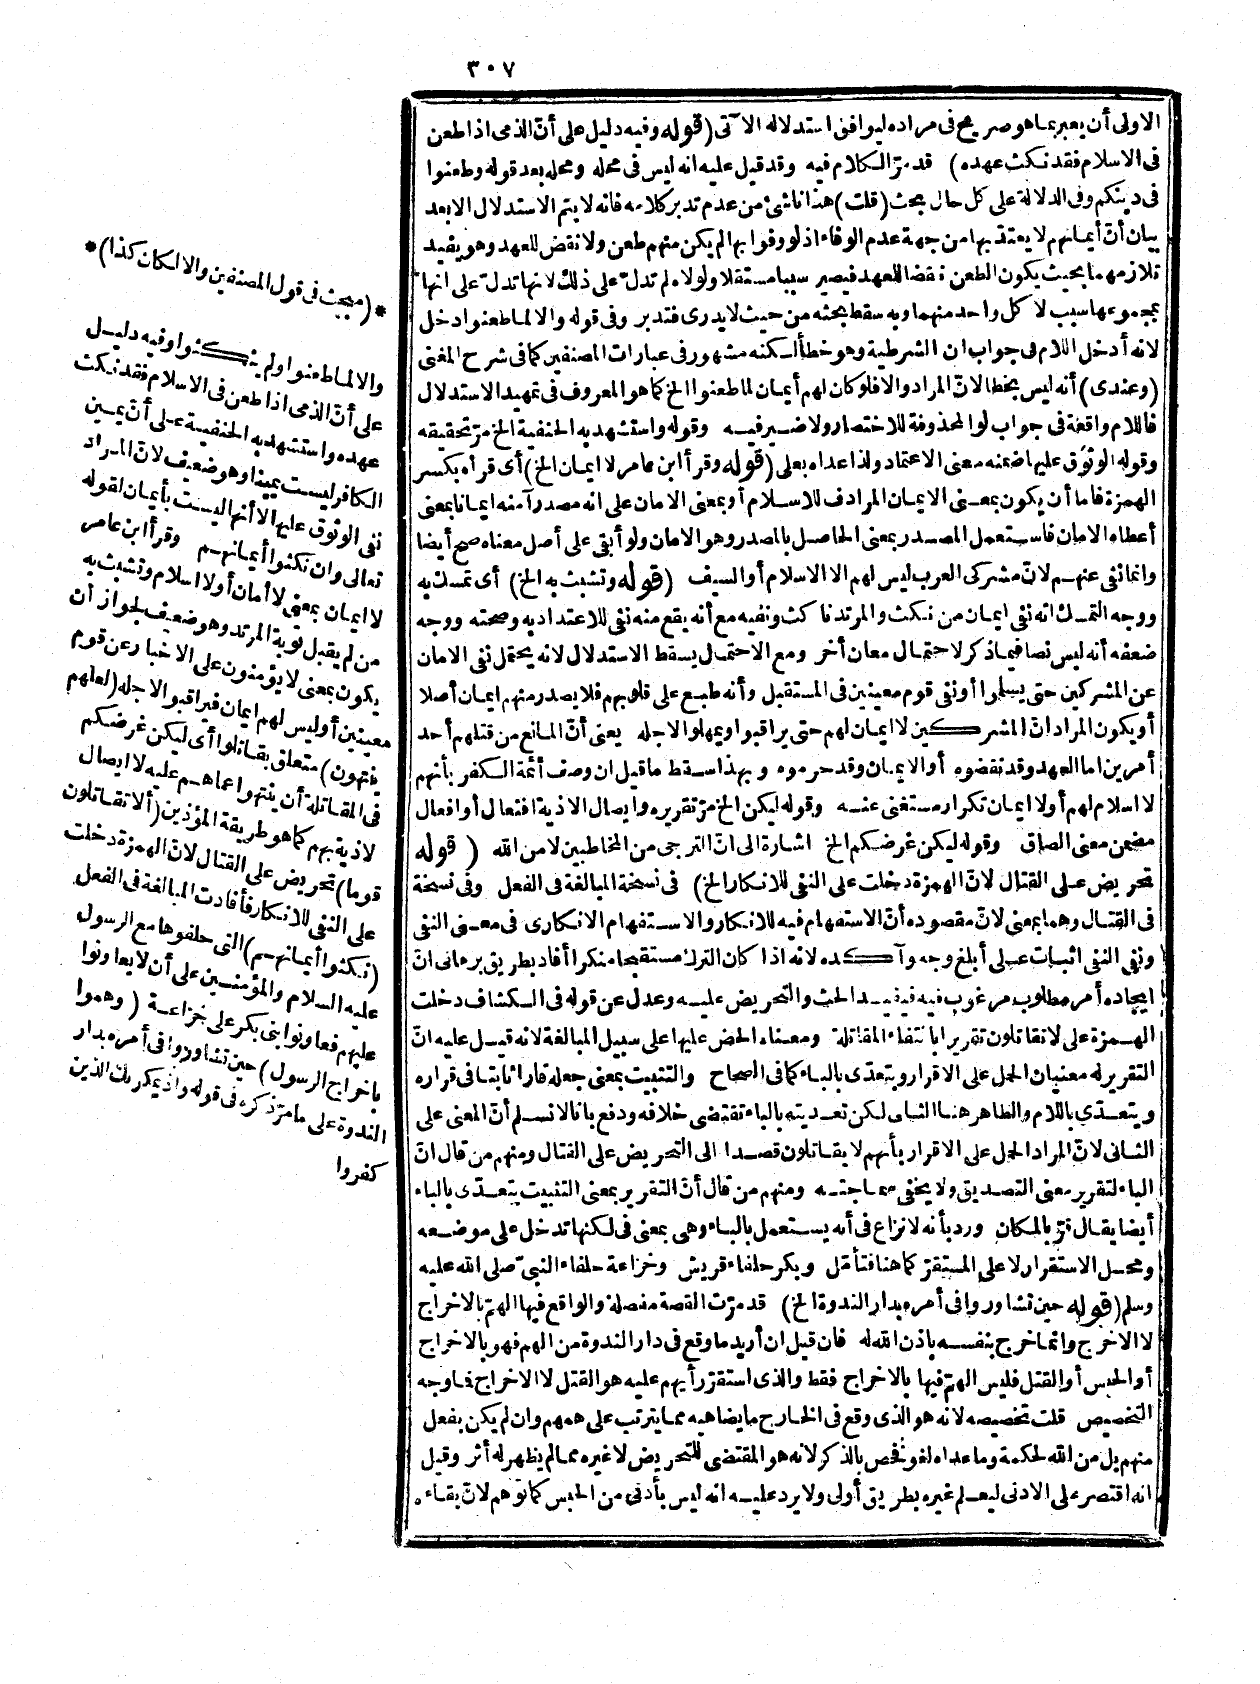 ٣٠٧
الاولى أن يعبر بما هو صريح فى مراده ليوافق استدلاله الآتى (قوله وفيه دليل على أنّ الذمى اذا طعن
فى الاسلام فقد نكث عهده) قد مرّ الكلام فيه وقد قيل عليه انه ليس فى محله ومحله بعد قوله وطعنوا
فى دينكم وفى الدلالة على كل حال بحث (قلت) هذا ناشئ من عدم تدبر كلامه فانه لا يتم الاستدلال الا بعد
بيان أنّ أيمانهم لا يعتدّ بها من جهة عدم الوفاء اذ لو وفوا بها لم يكن منهم طعن ولا نقض للعهد وهو يفيد
تلازمهما بحيث يكون الطعن نقضا للعهد فيصير سببا مستقلا ولولاه لم تدلّ على ذلك لانها تدلّ على انها
بمجموعها سبب لا كل واحد منهما وبه سقط بحثه من حيث لا يدرى فتدبر وفى قوله والا لما طعنوا دخل
لانه أدخل اللام فى جواب ان الشرطية وهو خطأ لكنه مشهور فى عبارات المصنفين كما فى شرح المغنى
(وعندى) أنه ليس بخطا لانّ المراد والا فلو كان لهم أيمان لما طعنوا الخ كما هو المعروف فى تمهيد الاستدلال
فاللام واقعة فى جواب لو المحذوفة للاختصار ولا ضير فيه وقوله واستشهد به الحنفية الخ مرّ تحقيقه
وقوله الوثوق عليها ضمنه معنى الاعتماد ولذا عداه بعلى (قوله وقرأ ابن عامر لا ايمان الخ) أى قرأه بكسر
الهمزة فاما أن يكون بمعنى الايمان المرادف للاسلام أو بمعنى الامان على انه مصدر آمنه ايمانا بمعنى
أعطاه الامان فاستعمل المصدر بمعنى الحاصل بالمصدر وهو الامان ولو أبقى على أصل معناه صح أيضا
وانما نفى عنهم لانّ مشركى العرب ليس لهم الا الاسلام أو السيف (قوله وتشبث به الخ) أى تمسك به
ووجه التمسك انه نفى ايمان من نكث والمرتد ناكث ونفيه مع أنه يقع منه نفى للاعتداد به وصحته ووجه
ضعفه أنه ليس نصا فيما ذكر لاحتمال معان أخر ومع الاحتمال يسقط الاستدلال لانه يحتمل نفى الامان
عن المشركين حتى يسلموا أو نفى قوم معينين فى المستقبل وأنه طبع على قلوبهم فلا يصدر منهم ايمان أصلا
أو يكون المراد انّ المشركين لا ايمان لهم حتى يراقبوا ويمهلوا لاجله يعنى أنّ المانع من قتلهم أحد
أمرين اما العهد وقد نقضوه أو الايمان وقد حرموه وبهذا سقط ما قيل ان وصف أئمة الكفر بأنهم
لا اسلام لهم أو لا ايمان تكرار مستغنى عنه وقوله ليكن الخ مرّ تقريره وايصال الاذية افتعال أو افعال
مضمن معنى الصاق وقوله ليكن غرضكم الخ اشارة الى انّ الترجى من المخاطبين لا من الله (قوله
تحريض على القتال لانّ الهمزة دخلت على النفى للانكار الخ) فى نسخة المبالغة فى الفعل وفى نسخة
فى القتال وهما بمعنى لانّ مقصوده أنّ الاستفهام فيه للانكار والاستفهام الانكارى فى معنى النفى
ونفى النفى اثبات على أبلغ وجه وآكده لانه اذا كان الترك مستقبحا منكرا أفاد بطريق برهانى انّ
ايجاده أمر مطلوب مرغوب فيه فيفيد الحث والتحريض عليه وعدل عن قوله فى الكشاف دخلت
الهمزة على لا تقاتلون تقريرا بانتفاء المقاتلة ومعناه الحض عليها على سبيل المبالغة لانه قيل عليه انّ
التقرير له معنيان الحمل على الاقرار ويتعدّى بالباء كما فى الصحاح والتثبيت بمعنى جعله قارا ثابتا فى قراره
ويتعدّى باللام والظاهر هنا الثانى لكن تعديته بالباء تقتضى خلافه ودفع بانا لا نسلم أنّ المعنى على
الثانى لانّ المراد الحمل على الاقرار بأنهم لا يقاتلون قصدا الى التحريض على القتال ومنهم من قال انّ
الباء لتقرير معنى التصديق ولا يخفى سماجته ومنهم من قال أنّ التقرير بمعنى التثبيت يتعدّى بالباء
أيضا يقال قرّ بالمكان ورد بأنه لا نزاع فى أنه يستعمل بالباء وهى بمعنى فى لكنها تدخل على موضعه
ومحل الاستقرار لا على المستقرّ كما هنا فتأمّل وبكر حلفاء قريش وخزاعة حلفاء النبىّ صلى الله عليه
وسلم (قوله حين تشاوروا فى أمره بدار الندوة الخ) قد مرّت القصة مفصلة والواقع فيها الهمّ بالاخراج
لا الاخراج وانما خرج بنفسه باذن الله له فان قيل ان أريد ما وقع فى دار الندوة من الهم فهو بالاخراج
أو الحبس أو القتل فليس الهمّ فيها بالاخراج فقط والذى استقرّ رأيهم عليه هو القتل لا الاخراج فما وجه
التخصيص قلت تخصيصه لانه هو الذى وقع فى الخارج ما يضاهيه مما يترتب على همهم وان لم يكن بفعل
منهم بل من الله لحكمة وما عداه لغو فخص بالذكر لانه هو المقتضى للتحريض لا غيره مما لم يظهر له أثر وقيل
انه اقتصر على الادنى ليعلم غيره بطريق أولى ولا يرد عليه انه ليس بأدنى من الحبس كما توهم لانّ بقاءه
*(مبحث فى قول المصنفين والا لكان كذا)*
والا لما طعنوا ولم ينكثوا وفيه دليل
على أنّ الذمى اذا طعن فى الاسلام فقد نكث
عهده واستشهد به الحنفية على أنّ يمين
الكافر ليست يمينا وهو ضعيف لانّ المراد
نفى الوثوق عليها لا أنها ليست بأيمان لقوله
تعالى وان نكثوا أيمانهم وقرأ ابن عامر
لا ايمان بمعنى لا أمان أو لا اسلام وتشبث به
من لم يقبل توبة المرتد وهو ضعيف لجواز أن
يكون بمعنى لا يؤمنون على الاخبار عن قوم
معينين أو ليس لهم ايمان فيراقبوا لاجله (لعلهم
ينتهون) متعلق بقاتلوا أى ليكن غرضكم
فى المقاتلة أن ينتهوا عما هم عليه لا ايصال
لاذية بهم كما هو طريقة المؤذين (ألا تقاتلون
قوما) تحريض على القتال لانّ الهمزة دخلت
على النفى للانكار فأفادت المبالغة فى الفعل
(نكثوا أيمانهم) التى حلفوها مع الرسول
عليه السلام والمؤمنين على أن لا يعاونوا
عليهم فعاونوا بنى بكر على خزاعة (وهموا
باخراج الرسول) حين تشاوروا فى أمره بدار
الندوة على ما مرّ ذكره فى قوله واذ يمكر بك الذين
كفروا